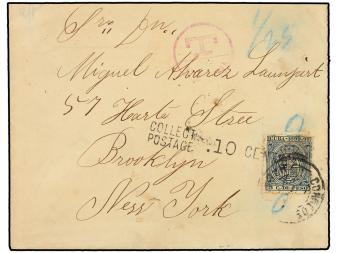 Sr. Dn.
T
1/25
Miguel Alvarez
57 Harts Stree
COLLECT
POSTAGE 10 CE
Brooklyn
New York